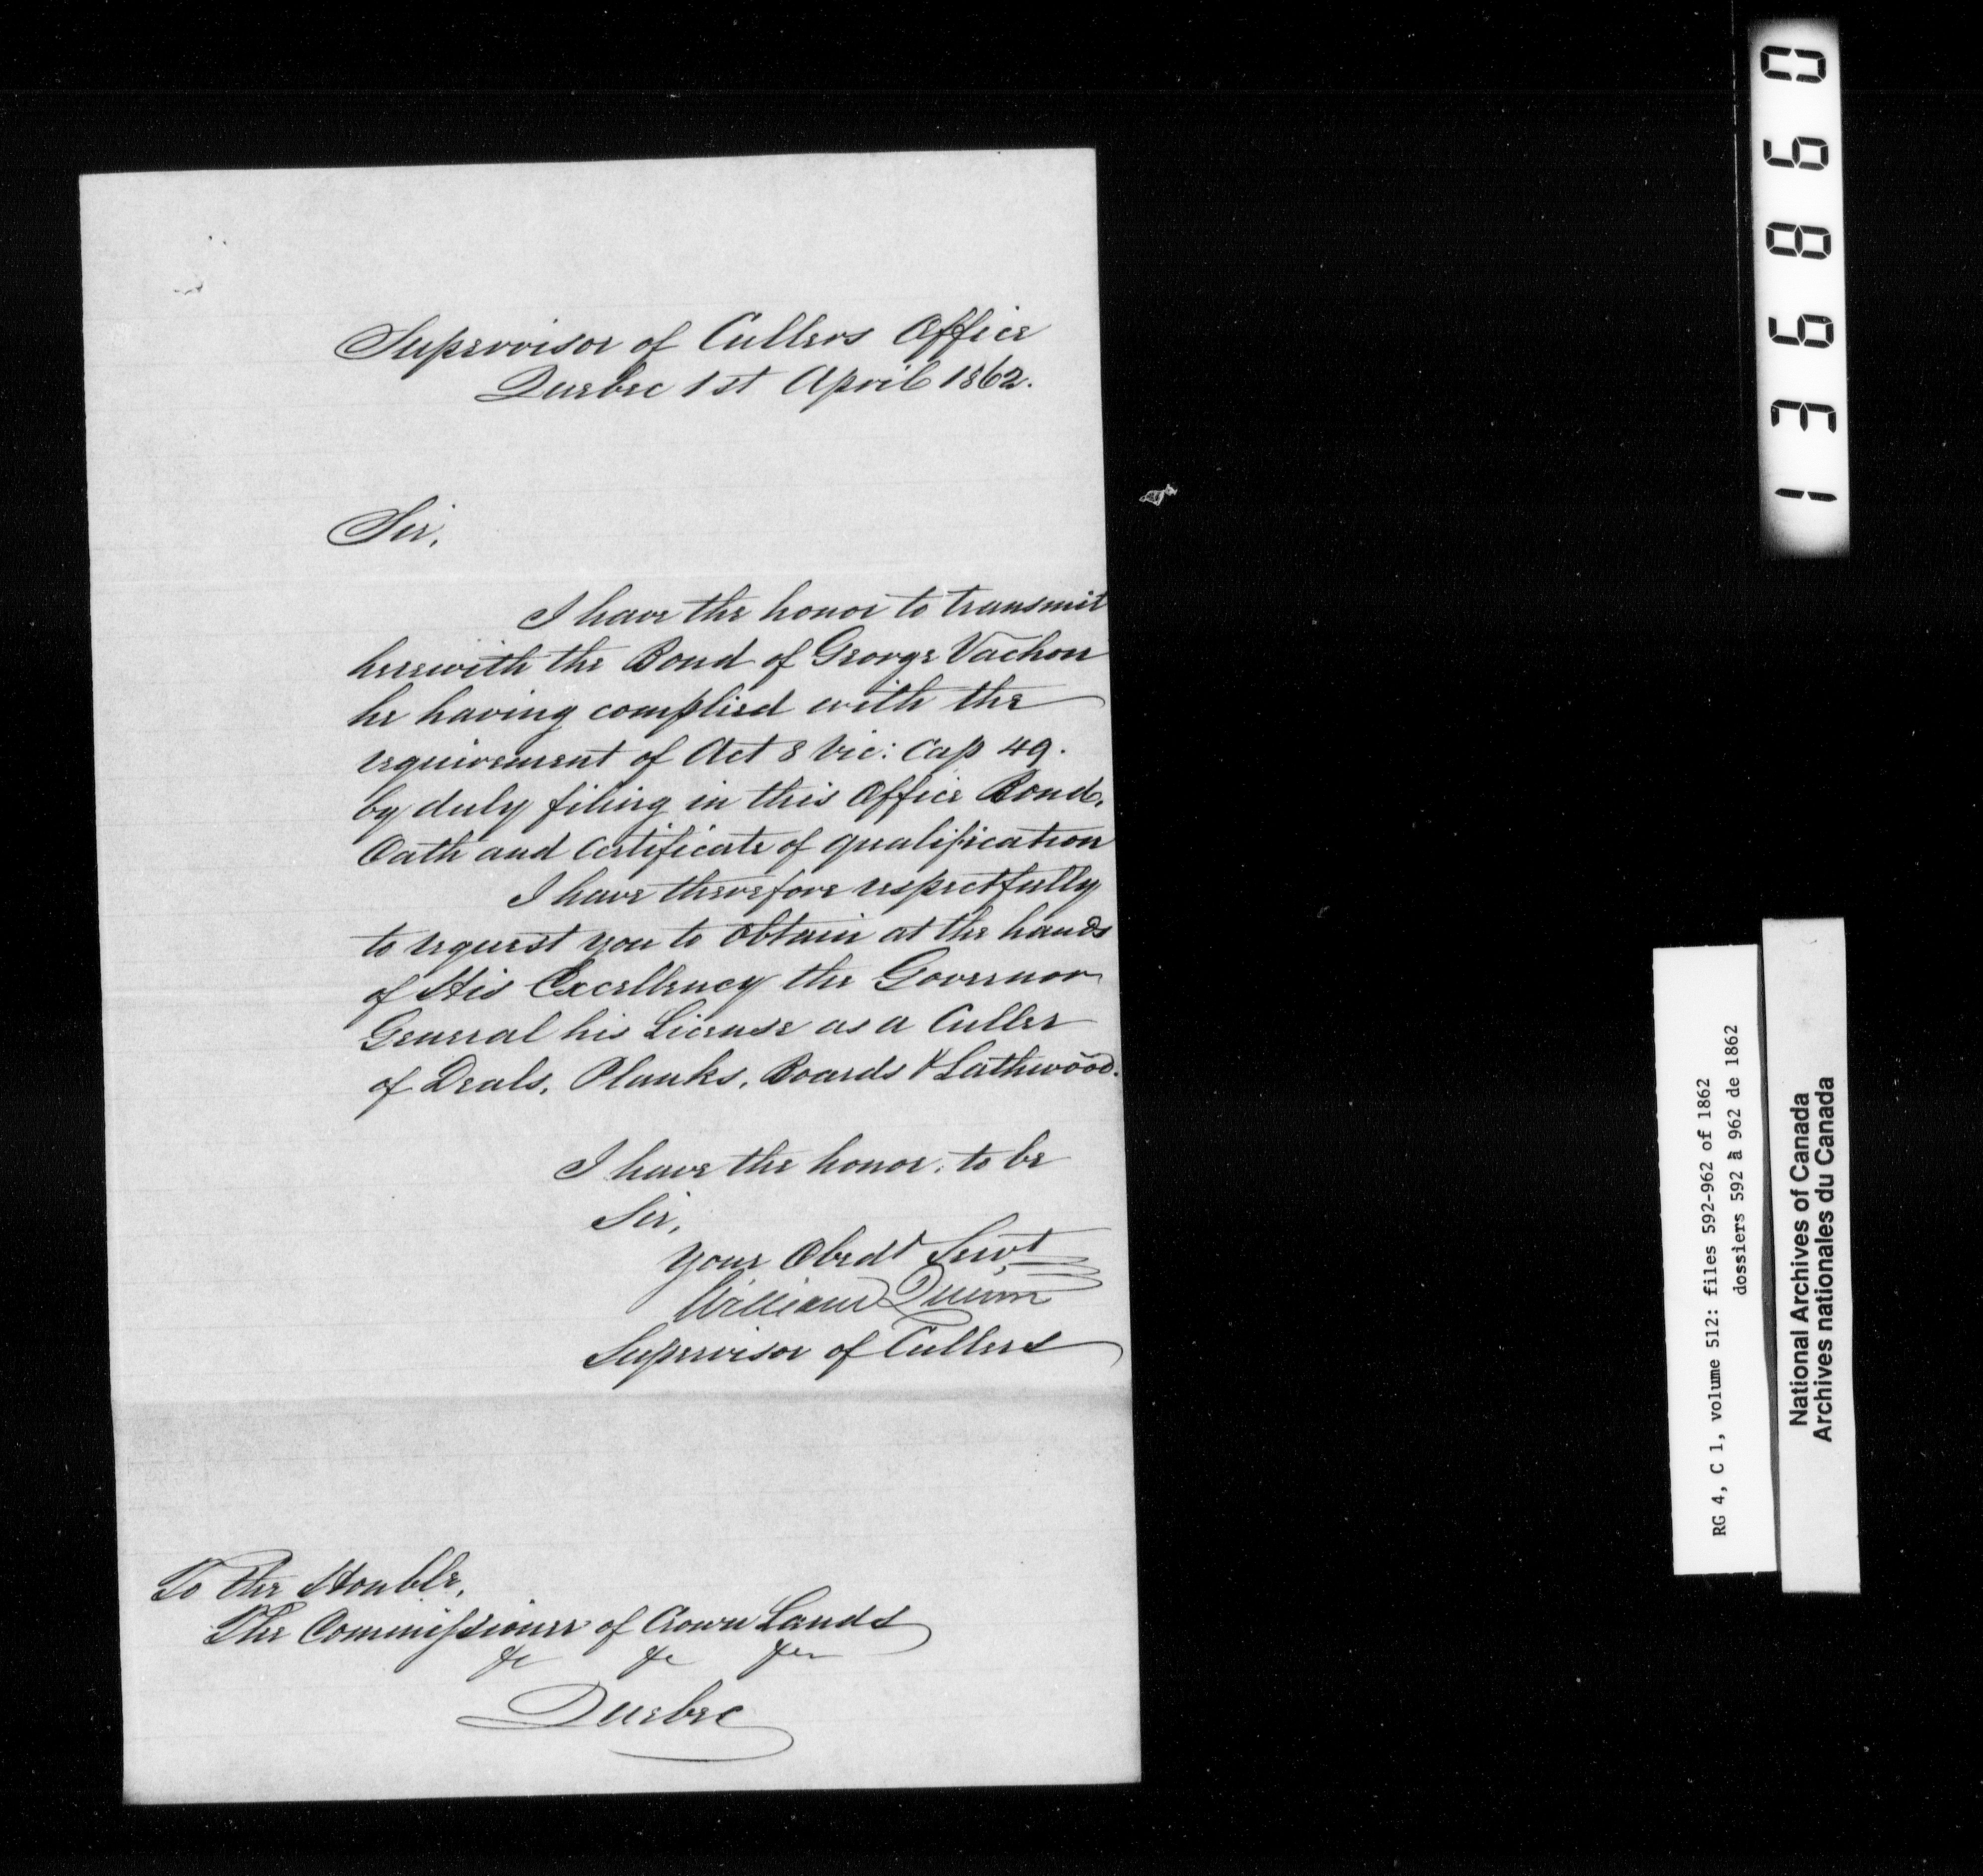 Supervisor of Cullers Office
Quebec 1st April 1862.
Sir,
I have the honor to transmit
herewith the Bond of George Vachon
he having complied with the
requirement of Act 8 Vic: Cap 49.
by duly filing in this Office Bond,
Oath and Certificate of qualification
I have therefore respectfully
to request you to obtain at the hands
of His Excellency the Governor
General his License as a Culler
of Deals, Planks, Boards & Lathwood.
I have the honor to be
Sir,
Your Obedt Servt
William Quinn
Supervisor of Cullers
To the Honble,
The Commissioner of Crown Lands
&c &c &c
Quebec
136860
RG 4, C 1, volume 512: files 592-962 of 1862
dossiers 592 à 962 de 1862
National Archives of Canada
Archives nationales du Canada